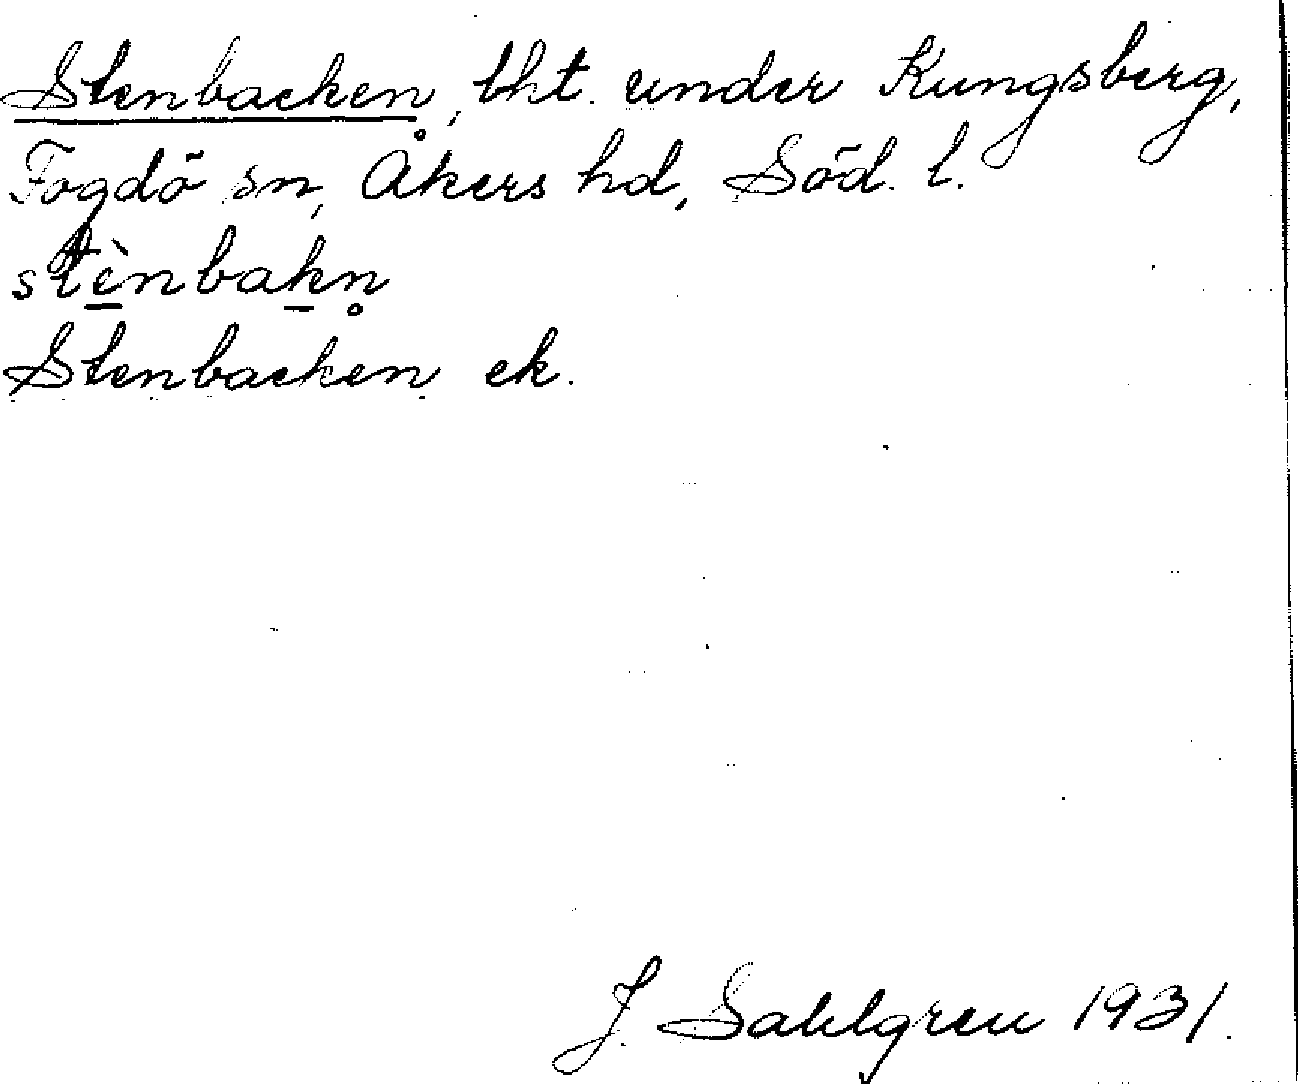 Stenbacken, tht. under Kungsberg,
Fogdö sn, Åkers hd, Söd. l.
stè̠nbak̠n̥
Stenbacken ek.
J. Sahlgren 1931.